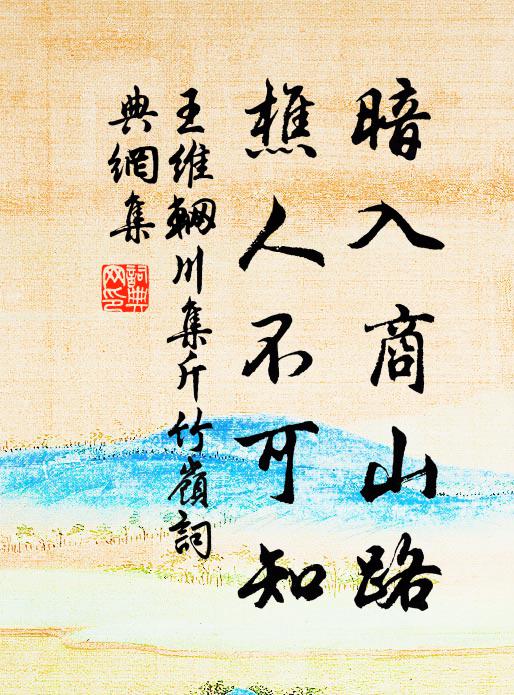 暗入商山路
樵人不可知
王維輞川集斤竹嶺詞
典網集
詞典
网印